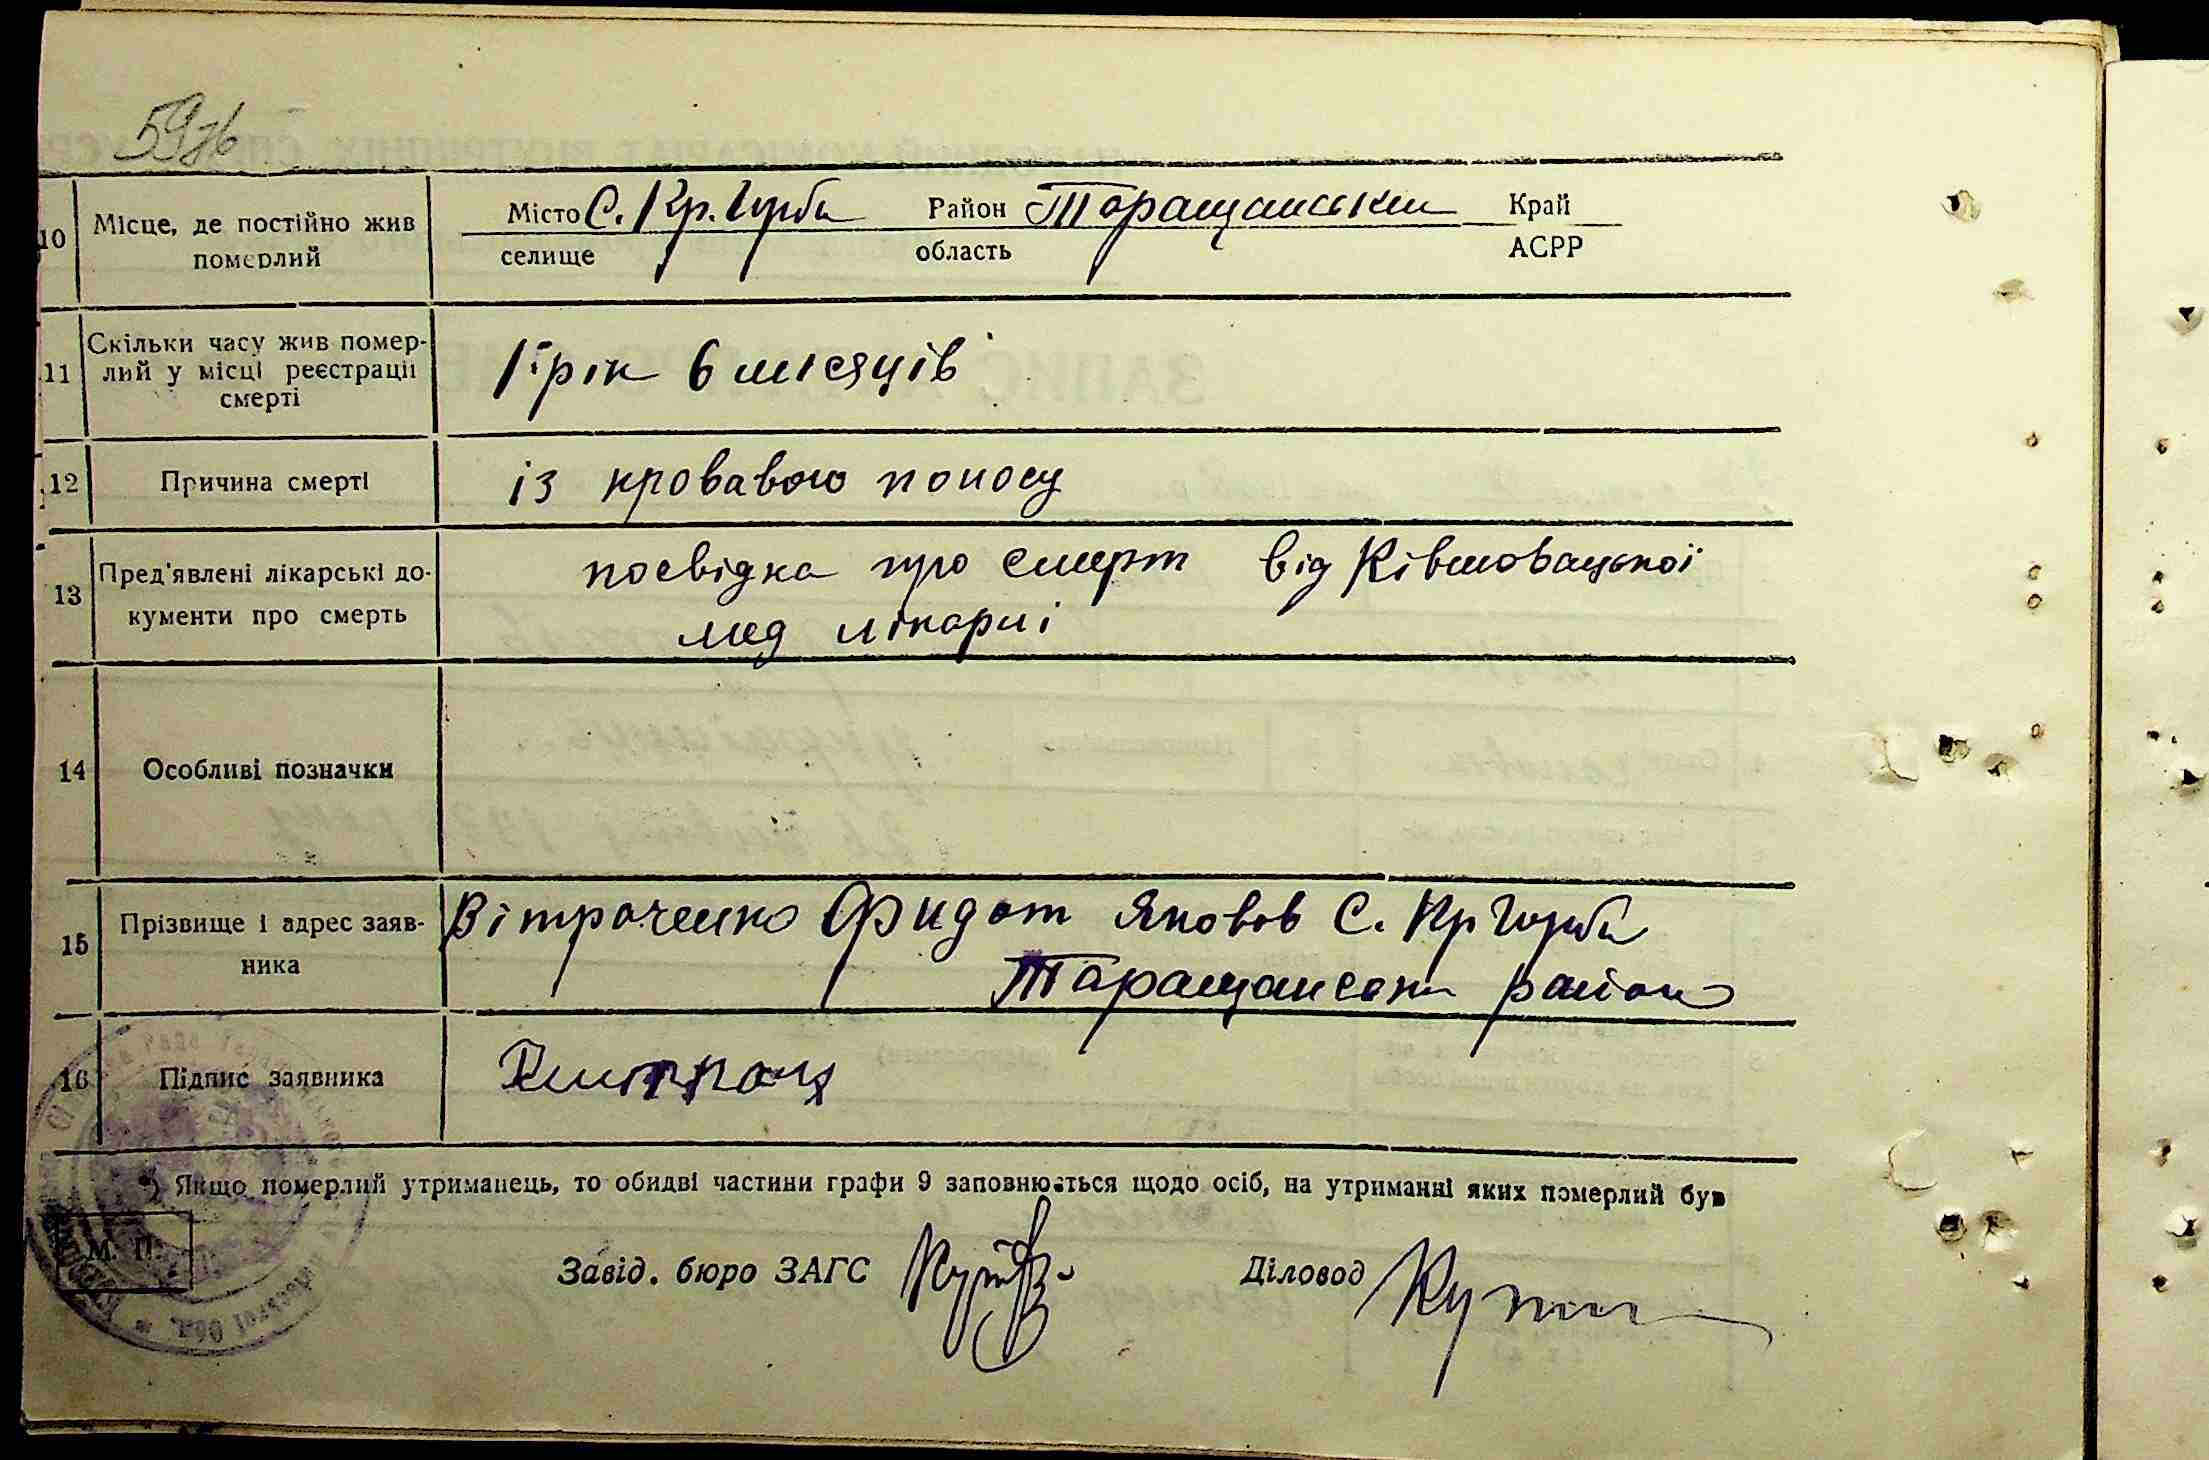 59зв
10 Місце, де постійно жив померлий
Місто С. Кр. Гурби Район Таращанський Край
селище область АСРР
11 Скільки часу жив помер-
лий у місці реєстрації
смерті
1 рік 6 місяців
12 Причина смерті
із кровавою поносу
13 Пред'явлені лікарські до-
кументи про смерть
посвідка про смерт від Ківшовацької
мед лікарні
14 Особливі позначки
15 Прізвище і адрес заяв-
ника
Вітраченко Фидот Яковов С. Кр Гурби
Таращанськи район
16 Підпис заявника
*) Якщо померлий утриманець, то обидві частини графи 9 заповнюються щодо осіб, на утриманні яких померлий був
М. П.
Завід. бюро ЗАГС Діловод